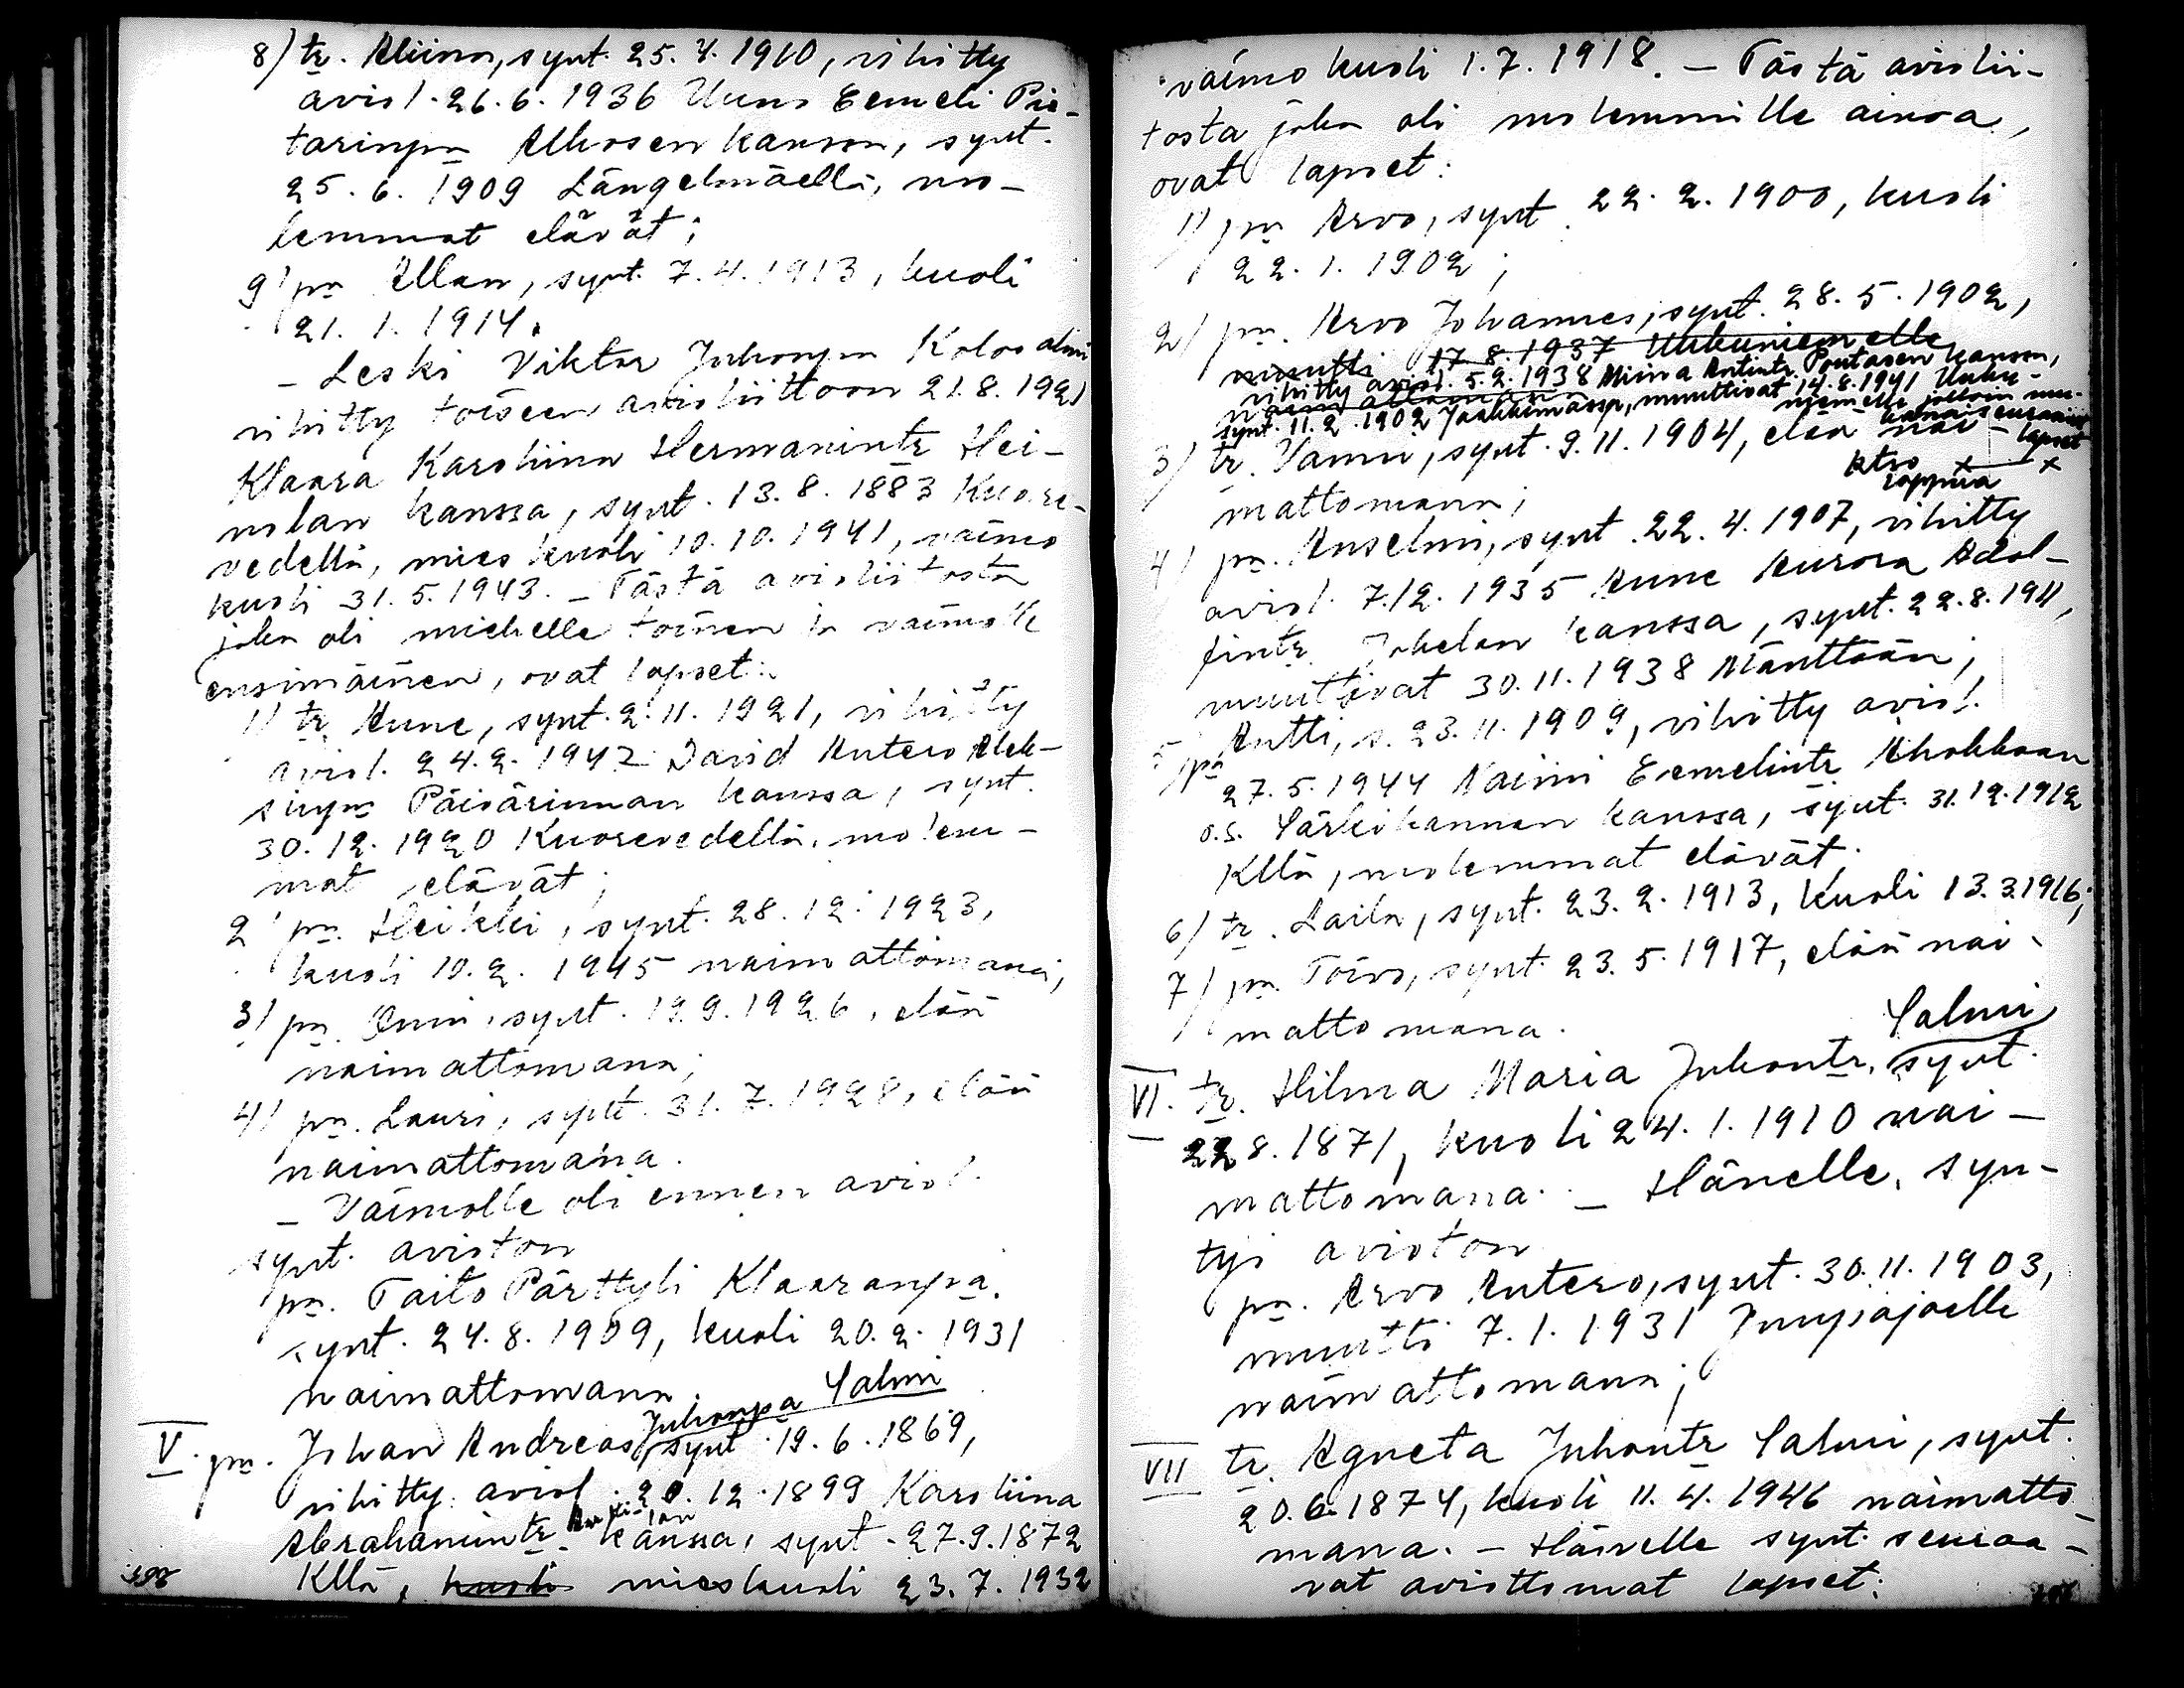 8) tr. Aliina, synt. 25.4.1910, vihitty
aviol. 26.6.1936 Uuno Eemeli Pie-
tarinpn Alhosen kanssa, synt.
25.6.1909 Längelmäellä, mo-
lemmat elävät;
9) pn Allan, synt. 7.4.1913, kuoli
21.1.1914.
- Leski Viktor Juhonpn Koloo
vihitty toiseen avioliittoon 21.8.1921
Klaara Karoliina Hermanintr Hei-
nolan kanssa, synt. 13.8.1883 Kuore-
vedellä, mies kuoli 10.10.1941, vaimo
kuoli 31.5.1943. - Tästä avioliitosta
joka oli miehelle toinen ja vaimolle
ensimäinen, ovat lapset:
1) tr. Aune, synt. 2.11.1921, vihitty
aviol. 24.2.1942 David Antero Alek-
sinpn Päivärinnan kanssa, synt.
30.12.1920 Kuorevedellä, molem-
mat elävät;
2) pn. Heikki, synt. 28.12.1923,
kuoli 10.2.1945 naimattomana;
3) pn. synt. 19.9.1926, elää
naimattomana;
4) pn. Lauri, synt. 31.7.1928, elää
naimattomana.
- Vaimolle oli ennen aviol.
synt. avioton
pn. Taito Pärttyli Klaaranpa.
synt. 24.8.1909, kuoli 20.2.1931
naimattomana.
Juhonpa Salmi
V. pn. Johan Andreas, synt. 19.6.1869,
vihitty aviol. 20.12.1899 Karoliina
Abrahamintr. kanssa, synt. 27.9.1872
Kllä, kuoli mies kuoli 23.7.1932
398
vaimo kuoli 1.7.1918. - Tästä aviolii-
tosta joka oli molemmille ainoa,
ovat lapset:
1) pn Arvo, synt. 22.2.1900, kuoli
22.1.1902;
2) pn. Arvo Johannes, synt. 28.5.1902,
muutti 17.8.1937 Uukuniemelle
vihitty aviol. 5.2.1938 Miina Antintr. Poutasen kanssa,
naimattomana
synt. 11.2.1902 Jaakkimassa, muuttivat 14.8.1941 Uuku-
niemelle jolloin
3) tr. Vanni, synt. 9.11.1904, elää nai-
lapset
Katso x——x
loppua
mattomana;
4) pn. Anselmi, synt. 22.4.1907, vihitty
aviol. 7.12.1935 Aune Aurora Adol-
fintr. Jokelan kanssa, synt. 22.8.1911,
muuttivat 30.11.1938 Mänttään;
5) pn Antti, s. 23.11.1909, vihitty aviol.
27.5.1944 Naimi Eemelintr Ahokkaan
o.s. Särkikannan kanssa, synt. 31.12.1912
Kllä, molemmat elävät;
6) tr. Laila, synt. 23.2.1913, kuoli 13.3.1916;
7) pn. Toivo, synt. 23.5.1917, elää nai-
mattomana.
Salmi
VI. tr. Hilma Maria Juhontr, synt.
22.8.1871, kuoli 24.1.1910 nai-
mattomana. - Hänelle, syn-
tyi avioton
pn. Arvo Antero, synt. 30.11.1903,
muutti 7.1.1931 Jämsäjoelle
naimattomana;
VII tr. Agneta Juhontr Salmi, synt.
20.6.1874, kuoli 11.4.1946 naimatto-
mana. - Hänelle synt. seuraa-
vat aviottomat lapset: